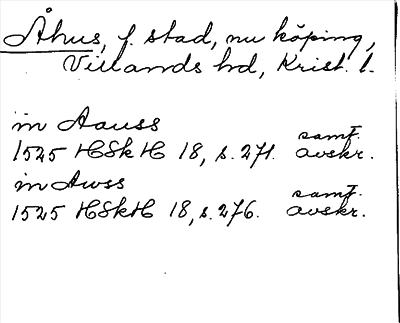 Åhus, f. stad, nu köping,
Villands hd, Krist. l.
in Aauss
1525 HSkH 18, s. 271. samt. avskr.
in Awss
1525 HSkH 18, s. 276. samt. avskr.